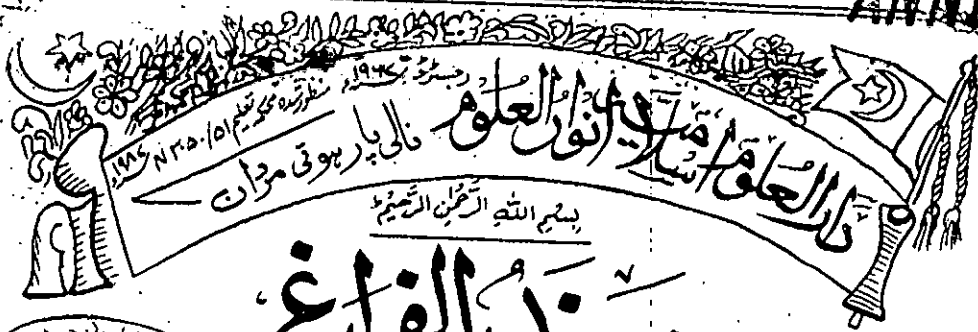 دارالعلوم اسلامیہ انوارالعلوم نالی پار ہوتی مردان
رجسٹرڈ ۱۹۶۷ء
منظور شدہ محکمہ تعلیم
بِسْمِ اللهِ الرَّحْمٰنِ الرَّحِيْمِ
سند الفراغ